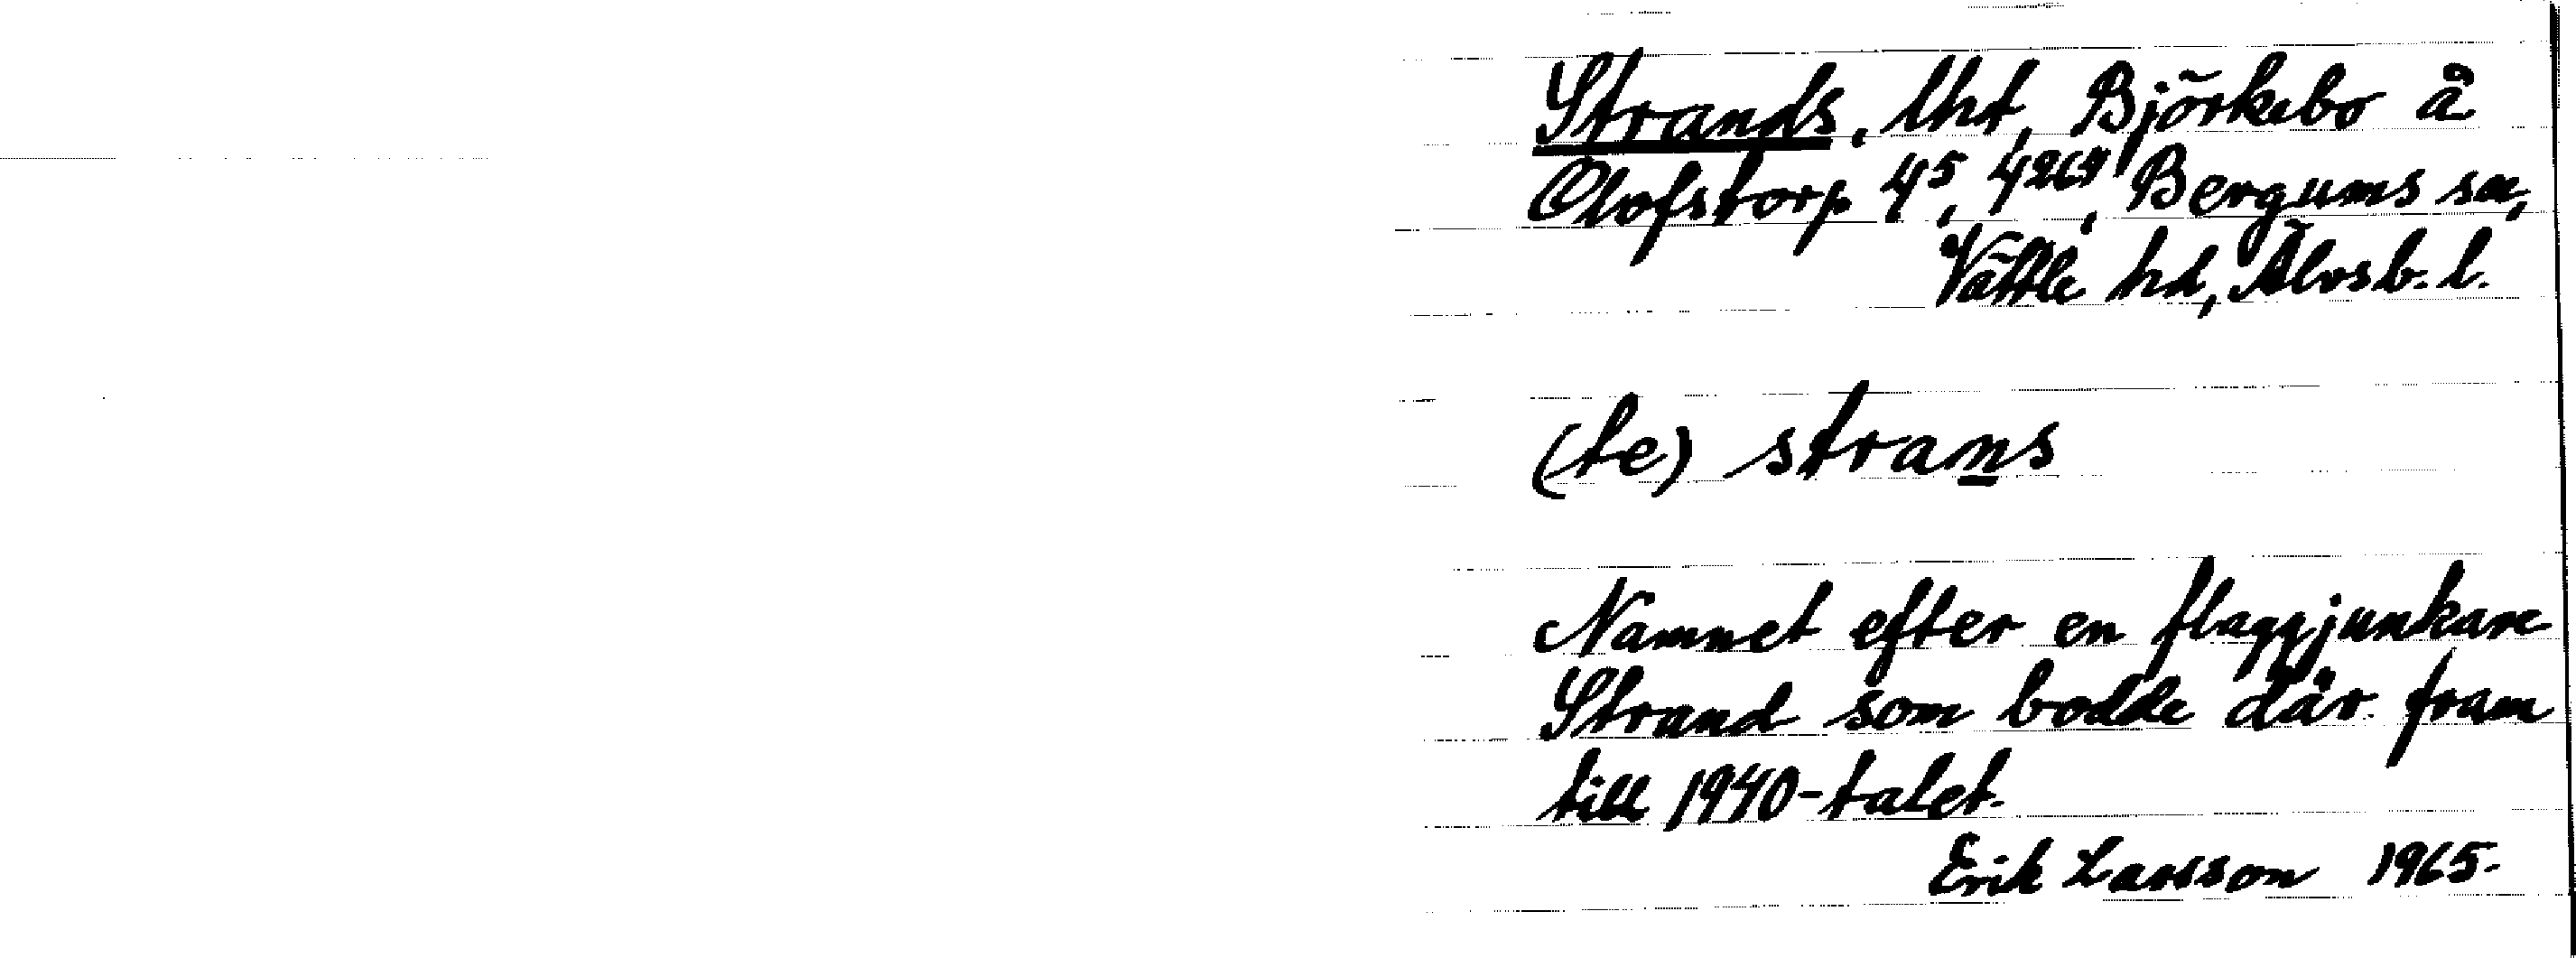 Strands, lht, Björkebo å
Olofstorp 4⁵, 4²⁶⁴, Bergums sn,
Vättle hd, Älvsb. l.
(te) strans
Namnet efter en flaggjunkare
Strand som bodde där fram
till 1940-talet.
Erik Larsson 1965.